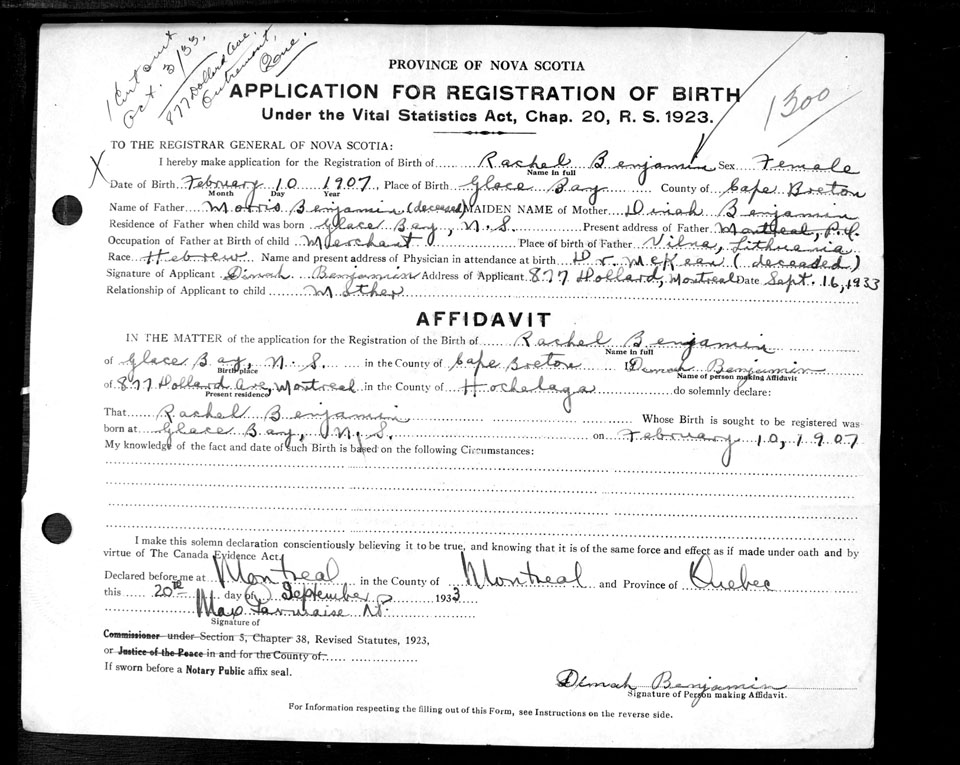 1 Cert out
Oct. 3/33.
877 Dollard Ave.
Outremont,
Que.
PROVINCE OF NOVA SCOTIA
APPLICATION FOR REGISTRATION OF BIRTH
Under the Vital Statistics Act, Chap. 20, R. S. 1923.
1300
TO THE REGISTRAR GENERAL OF NOVA SCOTIA:
X
I hereby make application for the Registration of Birth of Rachel Benjamin Sex Female
Name in full
Date of Birth February 10 1907 Place of Birth Glace Bay County of Cape Breton
Month Day Year
Name of Father Morris Benjamin (deceased) MAIDEN NAME of Mother Dinah Benjamin
Residence of Father when child was born Glace Bay, N.S. Present address of Father Montreal, P.Q.
Occupation of Father at Birth of child Merchant Place of birth of Father Vilna, Lithuania
Race Hebrew Name and present address of Physician in attendance at birth Dr. McKean (deceased)
Signature of Applicant Dinah Benjamin Address of Applicant 877 Dollard, Montreal Date Sept. 16, 1933
Relationship of Applicant to child Mother
AFFIDAVIT
IN THE MATTER of the application for the Registration of the Birth of Rachel Benjamin
Name in full
of Glace Bay, N.S. in the County of Cape Breton I Dinah Benjamin
Birth place Name of person making Affidavit
of 877 Dollard Ave, Montreal in the County of Hochelaga do solemnly declare:
Present residence
That Rachel Benjamin Whose Birth is sought to be registered was
born at Glace Bay, N.S. on February 10, 1907
My knowledge of the fact and date of such Birth is based on the following Circumstances:
I make this solemn declaration conscientiously believing it to be true, and knowing that it is of the same force and effect as if made under oath and by
virtue of The Canada Evidence Act.
Declared before me at Montreal in the County of Montreal and Province of Quebec
this 20th day of September 1933
Max N.P.
Signature of
Commissioner under Section 5, Chapter 38, Revised Statutes, 1923,
or Justice of the Peace in and for the County of
If sworn before a Notary Public affix seal.
Dinah Benjamin
Signature of Person making Affidavit.
For Information respecting the filling out of this Form, see Instructions on the reverse side.